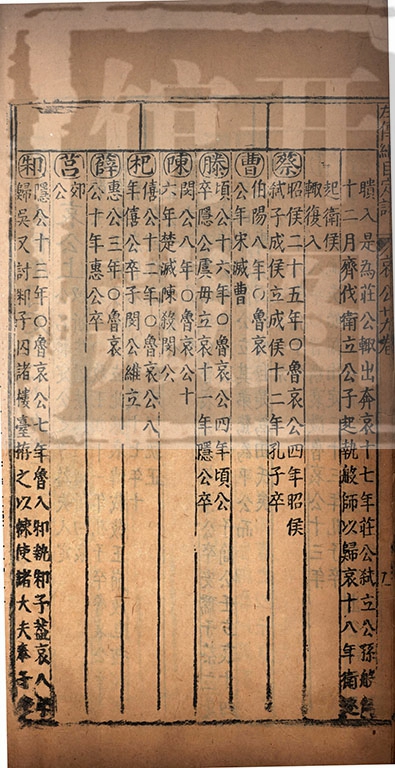 聵入是為莊公輙出奔哀十七年莊公弑立公孫般
十二月齊伐衛立公子起執般師以歸哀十八年衛逐
起衛侯
輙復入
蔡
昭侯二十五年○魯哀公四年昭侯
弑子成侯立成侯十二年孔子卒
曹
伯陽八年○魯哀
公年宋滅曹
滕
頃公十六年○魯哀公四年頃公
卒隱公虞毋立哀十一年隱公卒
陳
閔公八年○魯哀公十
六年楚滅陳殺閔公
杞
僖公十二年○魯哀公八
年僖公卒子閔公維立
薛
惠公三年○魯哀
公十年惠公卒
莒
郊
公
邾
隱公十三年○魯哀公七年魯入邾執邾子益哀八年
歸吳又討邾子囚諸樓臺栫之以棘使諸大夫奉子